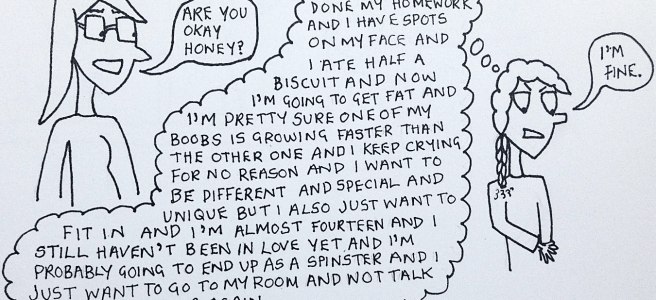 ARE YOU
OKAY
HONEY?
DONE MY HOMEWORK
AND I HAVE SPOTS
ON MY FACE AND
I ATE HALF A
BISCUIT AND NOW
I'M GOING TO GET FAT AND
I'M PRETTY SURE ONE OF MY
BOOBS IS GROWING FASTER THAN
THE OTHER ONE AND I KEEP CRYING
FOR NO REASON AND I WANT TO
BE DIFFERENT AND SPECIAL AND
UNIQUE BUT I ALSO JUST WANT TO
FIT IN AND I'M ALMOST FOURTEEN AND I
STILL HAVEN'T BEEN IN LOVE YET AND I'M
PROBABLY GOING TO END UP AS A SPINSTER AND I
JUST WANT TO GO TO MY ROOM AND NOT TALK
I'M
FINE.